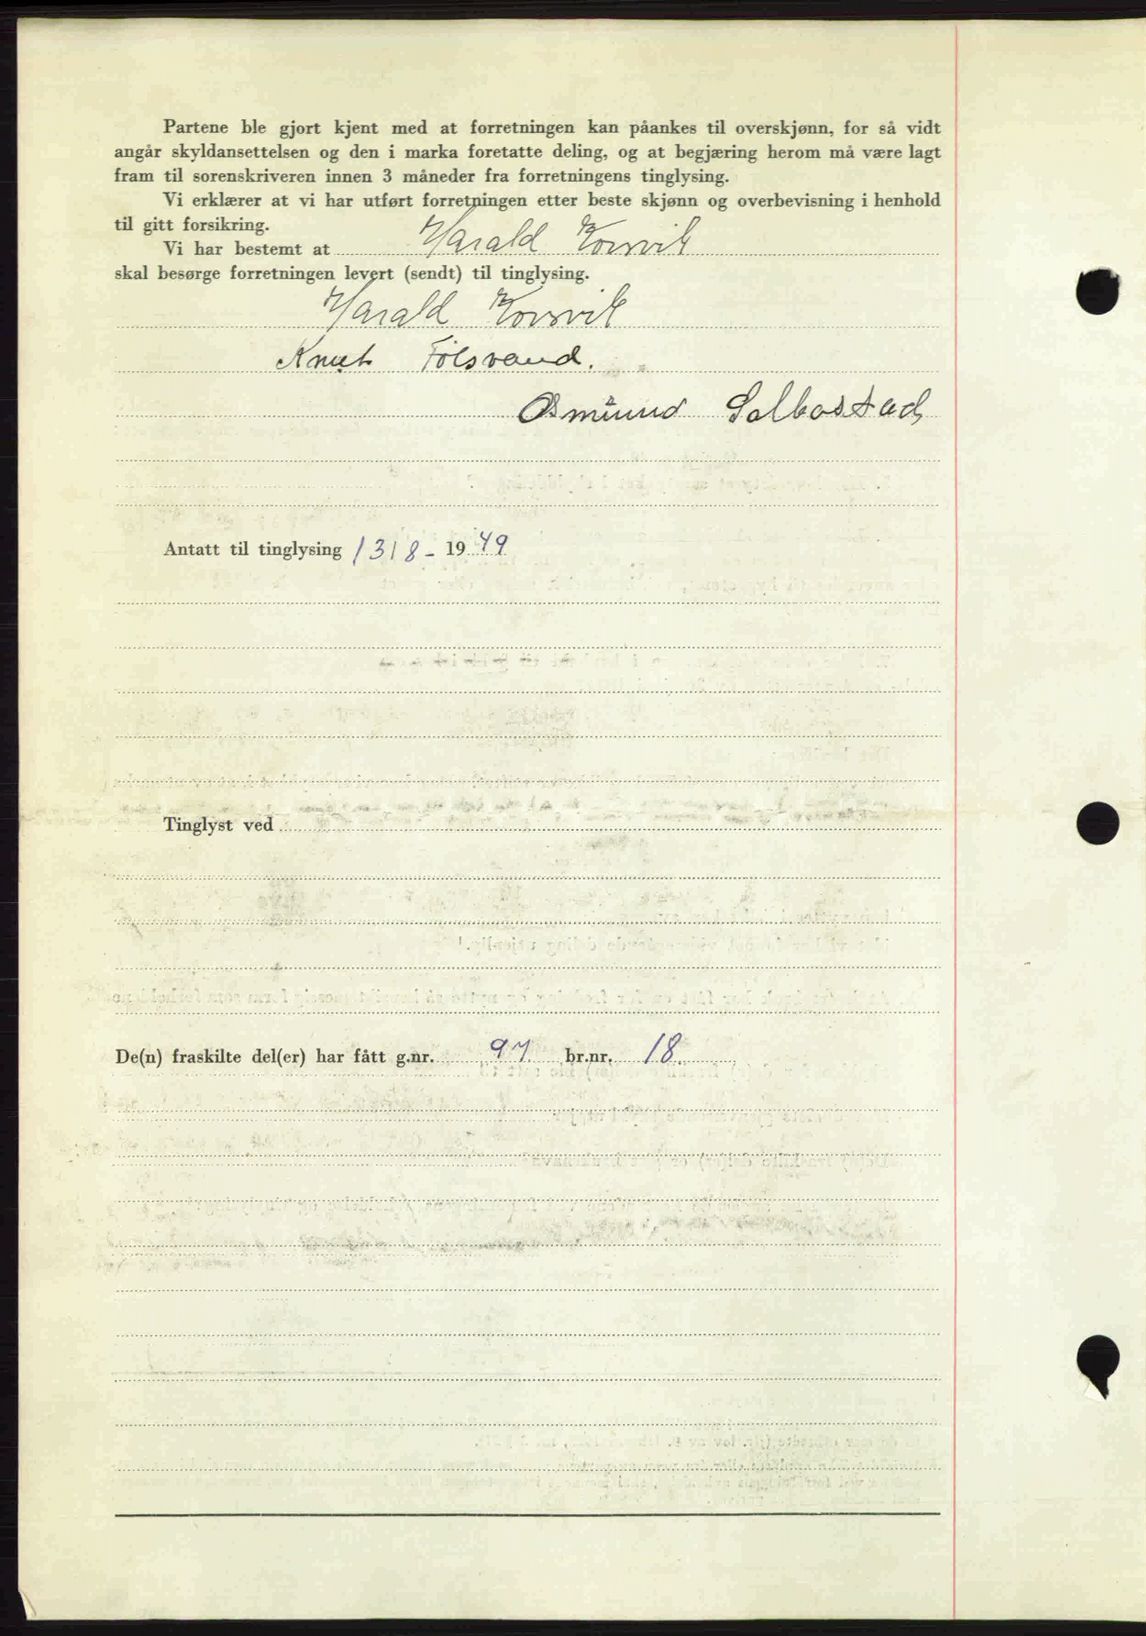 Partene ble gjort kjent med at forretningen kan påankes til overskjønn, for så vidt
angår skyldansettelsen og den i marka foretatte deling, og at begjæring herom må være lagt
fram til sorenskriveren innen 3 måneder fra forretningens tinglysing.
Vi erklærer at vi har utført forretningen etter beste skjønn og overbevisning i henhold
til gitt forsikring.
Vi har bestemt at Harald Korsvik
skal besørge forretningen levert (sendt) til tinglysing.
Harald Korsvik
Knut Folsvand.
Osmund Solbostad
Antatt til tinglysing 1318- 1949
Tinglyst ved
De(n) fraskilte del(er) har fått g.nr. 97 br.nr. 18